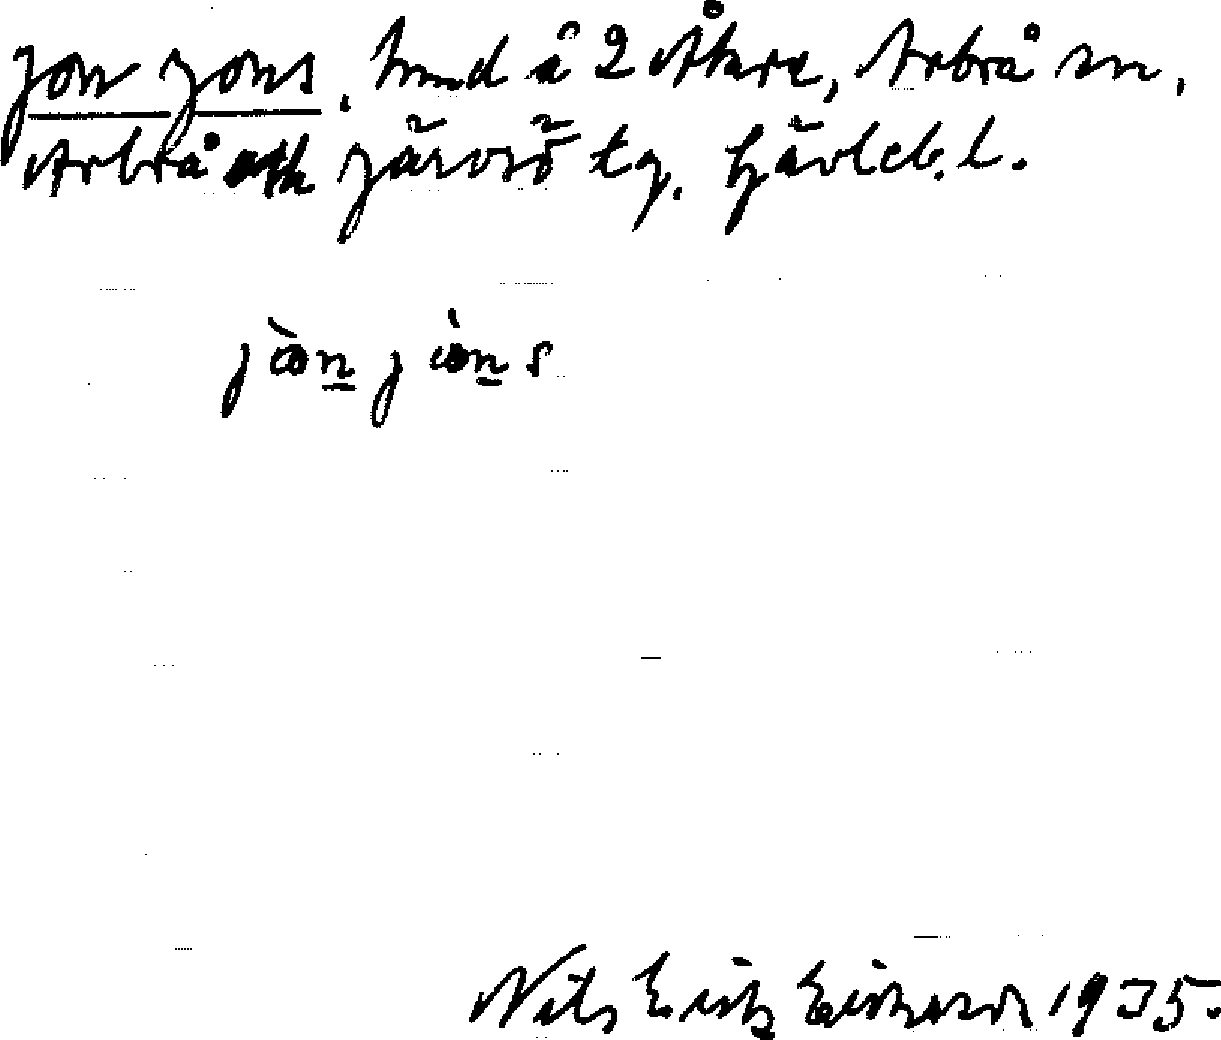 Jon Jons, hmd å 2 Åkre, Arbrå sn,
Arbrå och Järvsö tg. Gävleb. l.
jòn jòns
Nils Eriks Eriksson 1935.